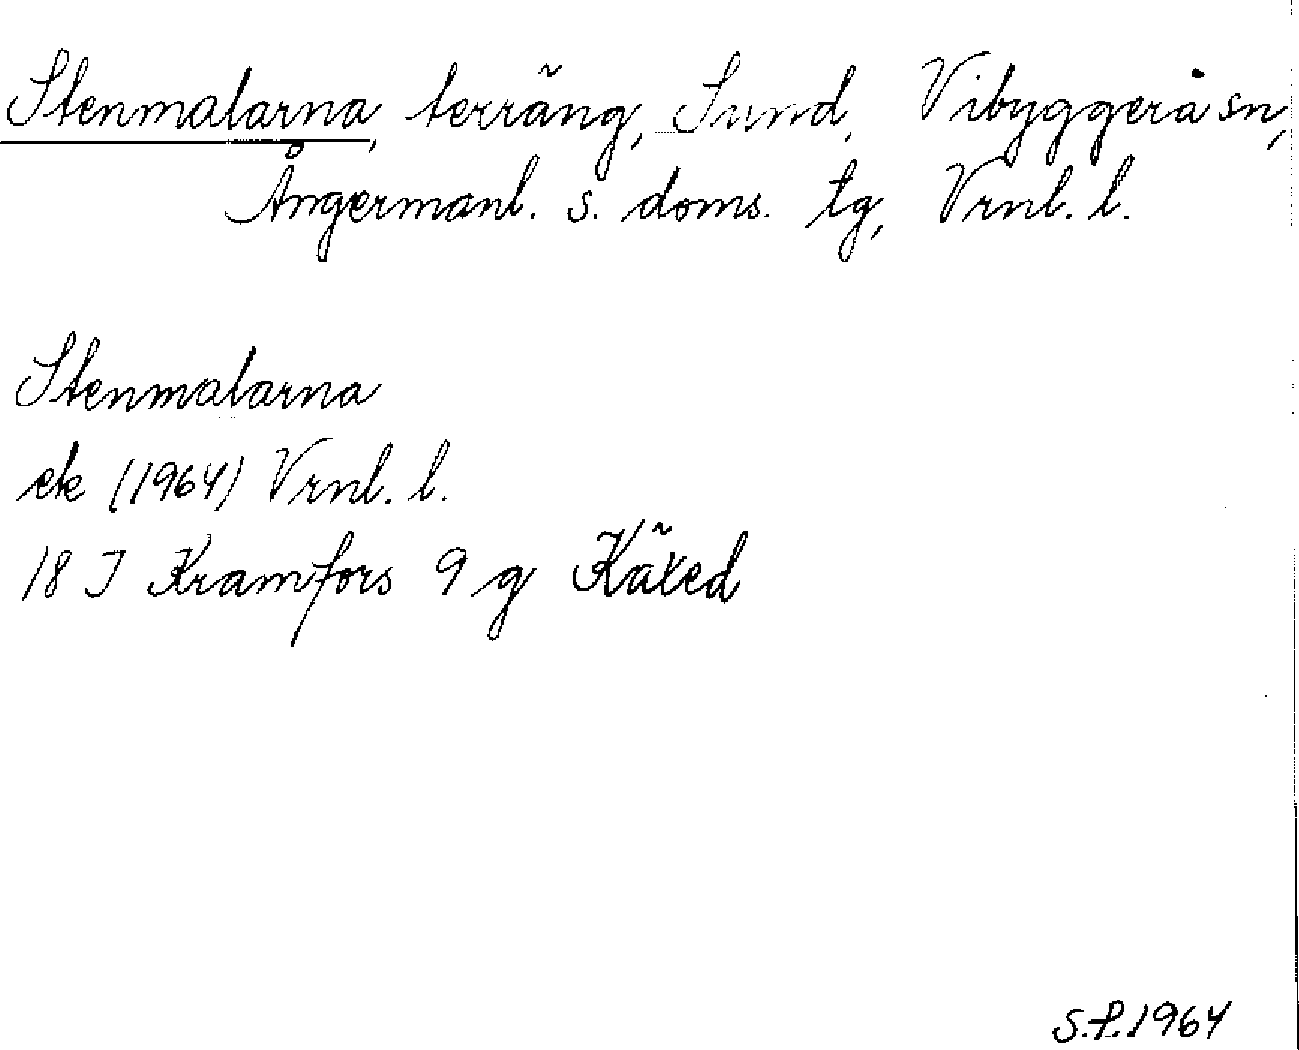 Stenmalarna, terräng, Sund, Vibyggerå sn,
Ångermanl. s. doms. tg, Vrnl. l.
Stenmalarna
ek (1964) Vrnl. l.
18 I Kramfors 9 g Käxed
S.P. 1964